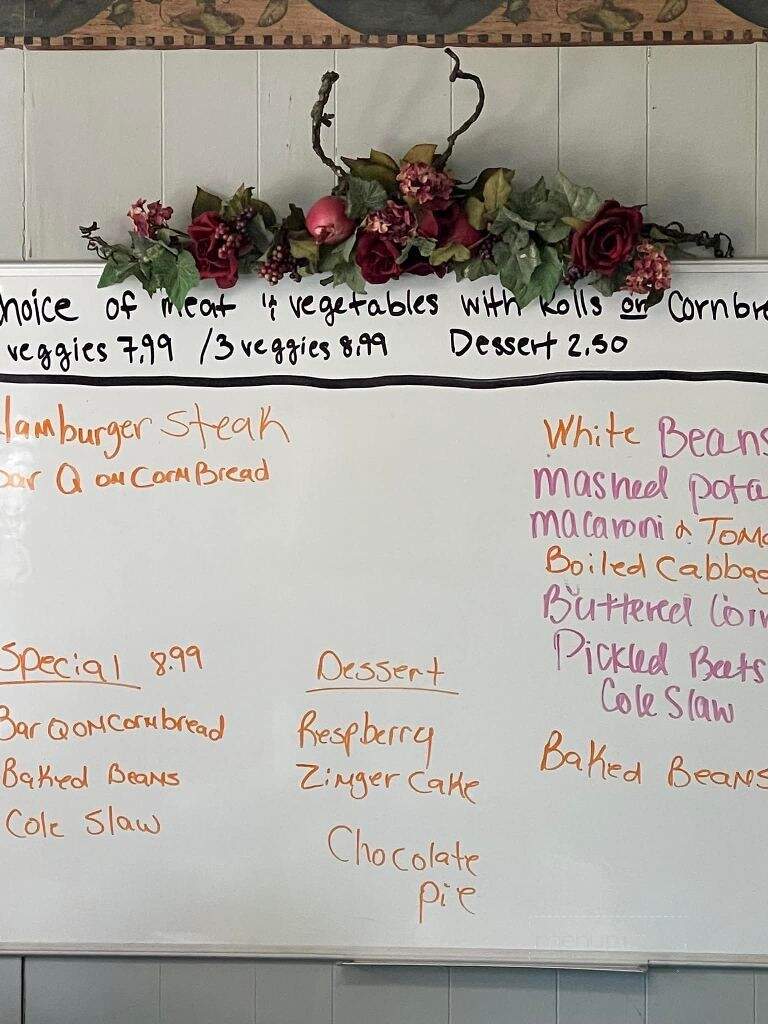 hoice of meat & vegetables with Rolls or Cornbre
veggies 7.99 / 3 veggies 8.99 Dessert 2.50
Hamburger Steak
Bar Q on Corn Bread
Special 8.99
Bar Q on Cornbread
Baked Beans
Cole Slaw
Dessert
Respberry
Zinger Cake
Chocolate
Pie
White Beans
Mashed pota
Macaroni & Toma
Boiled Cabbag
Buttered Corn
Pickled Beets
Cole Slaw
Baked Beans
menum